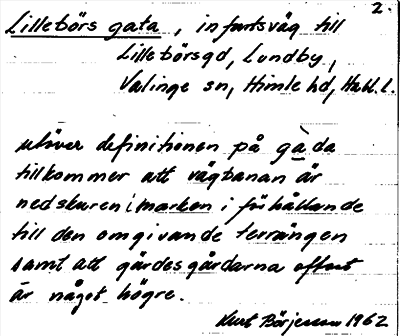 2.
Lillebörs gata, infartsväg till
Lillebörsgd, Lundby,
Valinge sn, Himle hd, Hall. l.
utöver definitionen på gàda
tillkommer att vägbanan är
nedskuren i marken i förhållande
till den omgivande terrängen
samt att gärdesgårdarna oftast
är något högre.
Kurt Börjesson 1962